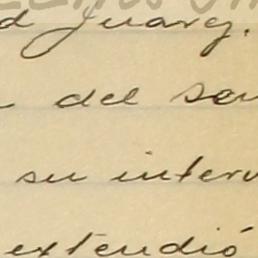 d Juarez.
del sen
su interv
extendió